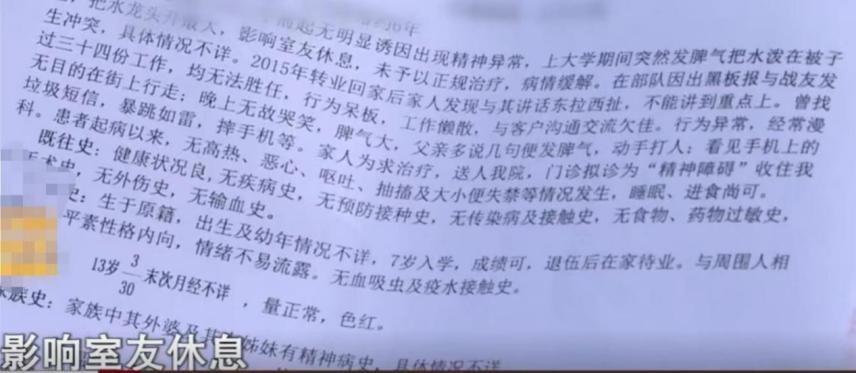 把水龙头开最大，影响室友休息，
前起无明显诱因出现精神异常，上大学期间突然发脾气把水泼在被子
生冲突，具体情况不详。2015年转业回家后家人发现与其讲话东拉西扯，不能讲到重点上。曾找
未予以正规治疗，病情缓解。在部队因出黑板报与战友发
过三十四份工作，均无法胜任，行为呆板，工作懒散，与客户沟通交流欠佳。行为异常，经常漫
无目的在街上行走；晚上无故哭笑，脾气大，父亲多说几句便发脾气，动手打人；看见手机上的
垃圾短信，暴跳如雷，摔手机等。家人为求治疗，送人我院，门诊拟诊为“精神障碍”收住我
科。患者起病以来，无高热、恶心、呕吐、抽搐及大小便失禁等情况发生，睡眠、进食尚可。
既往史：健康状况良，无疾病史，无预防接种史，无传染病及接触史，无食物、药物过敏史，
术史，无外伤史，无输血史。
史：生于原籍，出生及幼年情况不详，7岁入学，成绩可，退伍后在家待业。与周围人相
平素性格内向，情绪不易流露。无血吸虫及疫水接触史。
13岁 3/30 末次月经不详，量正常，色红。
族史：家族中其外婆及其 姊妹有精神病史，具体情况不详
影响室友休息